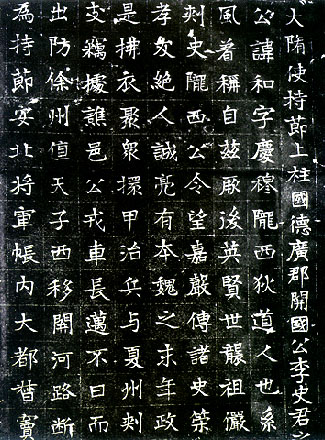 大隋使持節上柱國德廣郡開國公李史君之
公諱和字慶穆隴西狄道人也系
風著稱自茲厥後英賢世襲祖儼
刾史隴西公令望嘉嚴傳諸史筞
孝友絕人誠亮有本魏之末年政
是拂衣聚眾擐甲治兵与夏州刾
支竊據譙邑公戎車長邁不日而
出防徐州值天子西移關河路断
為持節安北將軍帳內大都督